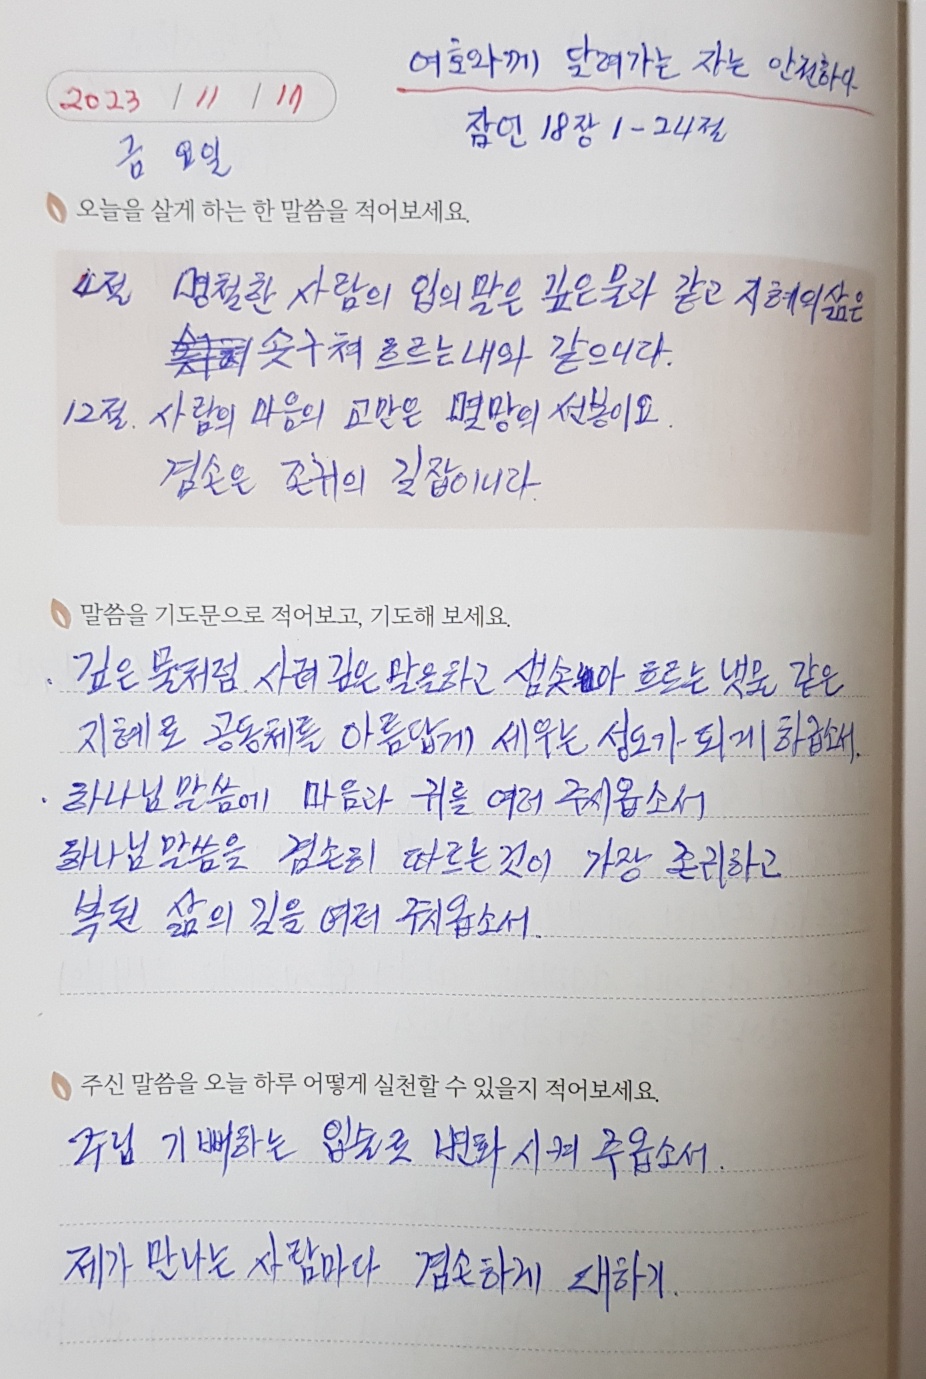 여호와께 달려가는 자는 안전하다
2023 / 11 / 17
잠언 18장 1-24절
금요일
오늘을 살게 하는 한 말씀을 적어보세요.
4절 명철한 사람의 입의 말은 깊은물과 같고 지혜의샘은
솟구쳐 흐르는내와 같으니라.
12절. 사람의 마음의 교만은 멸망의 선봉이요.
겸손은 존귀의 길잡이니라.
말씀을 기도문으로 적어보고, 기도해 보세요.
. 깊은 물처럼 사려깊은 말을하고 샘솟아 흐르는 냇물 같은
지혜로 공동체를 아름답게 세우는 성도가 되게 하옵소서.
. 하나님 말씀에 마음과 귀를 여러 주시옵소서
하나님 말씀을 겸손히 따르는것이 가장 존귀하고
복된 삶의 길을 여러 주시옵소서.
주신 말씀을 오늘 하루 어떻게 실천할 수 있을지 적어보세요.
주님 기뻐하는 입술로 변화 시켜 주옵소서.
제가 만나는 사람마다 겸손하게 대하기.